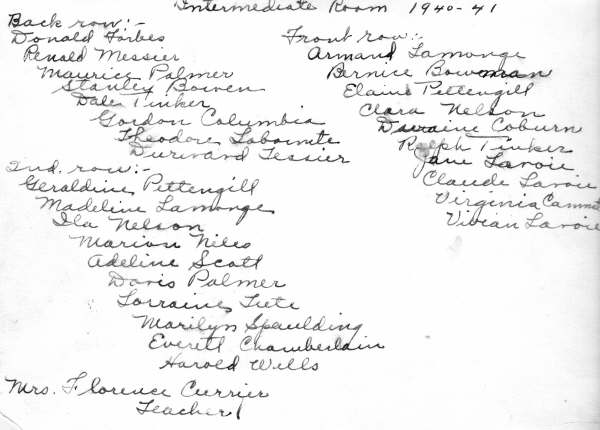 Intermediate Room 1940-41
Back row:-
Donald Forbes
Renald Messier
Maurice Palmer
Stanley Bowen
Dale Tinker
Gordon Columbia
Theodore Labounte
Durward Tessier
2nd. row:-
Geraldine Pettengill
Madeline Lamonge
Ila Nelson
Marion Niles
Adeline Scott
Doris Palmer
Lorraine
Marilyn Spaulding
Everett Chamberlain
Harold Wells
Mrs. Florence Currier
Teacher
Front row:-
Armand Lamonge
Bernice Bowman
Elaine Pettengill
Clara Nelson
Coburn
Ralph Tinker
Jane Lavoie
Claude Lavoie
Virginia
Vivian Lavoie